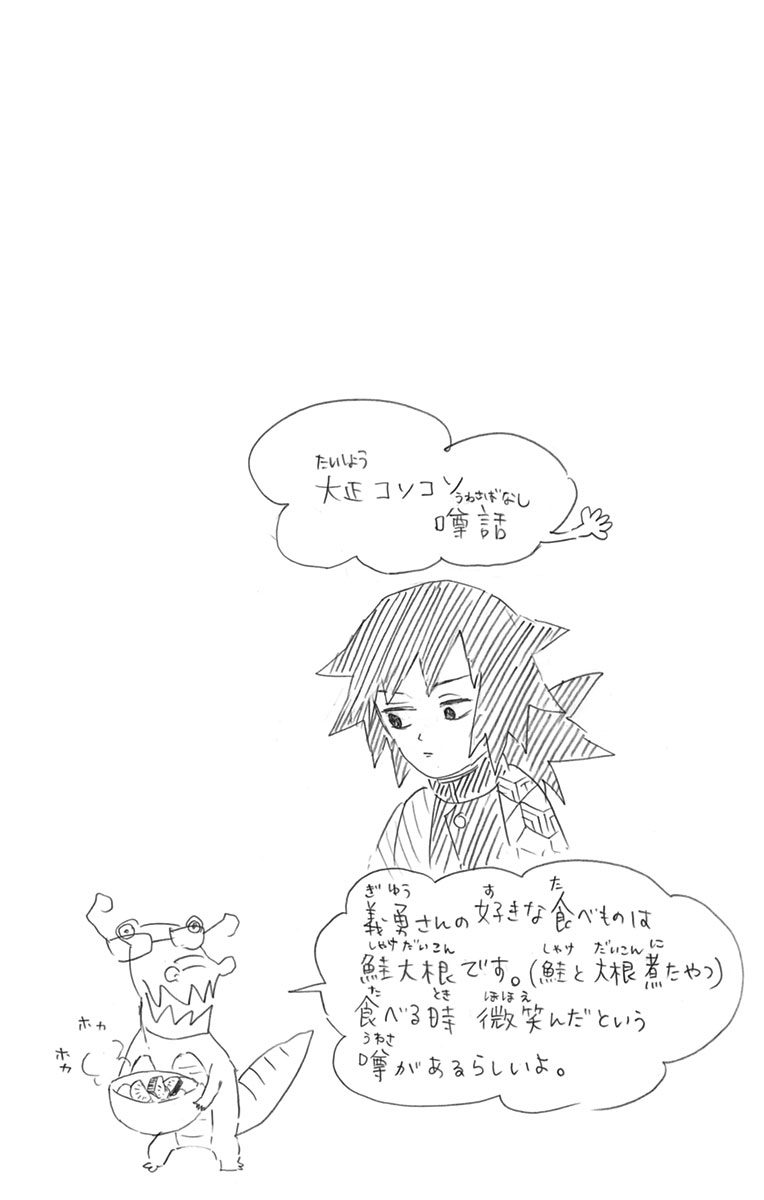 大正コソコソ
噂話
義勇さんの好きな食べものは
鮭大根です。(鮭と大根煮たやつ)
食べる時 微笑んだという
噂があるらしいよ。
ホカ
ホカ